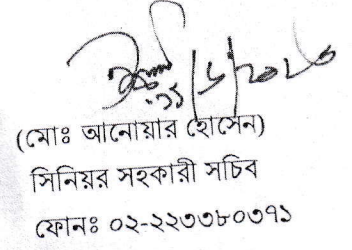 (মোঃ আনোয়ার হোসেন)
সিনিয়র সহকারী সচিব
ফোনঃ ০২-২২৩৩৮০৩৭১